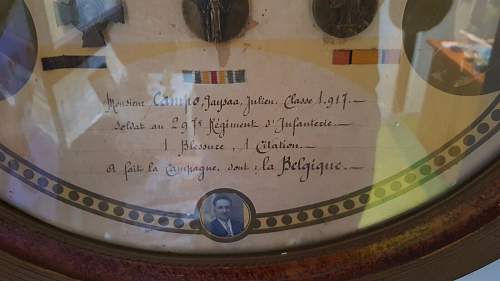 Monsieur Campo, Jaysaa, Julien, Classe 1.917.—
Soldat au 297e Régiment d'Infanterie.—
1 Blessure, 1 Citation.—
A fait la Campagne, dont : la Belgique.—